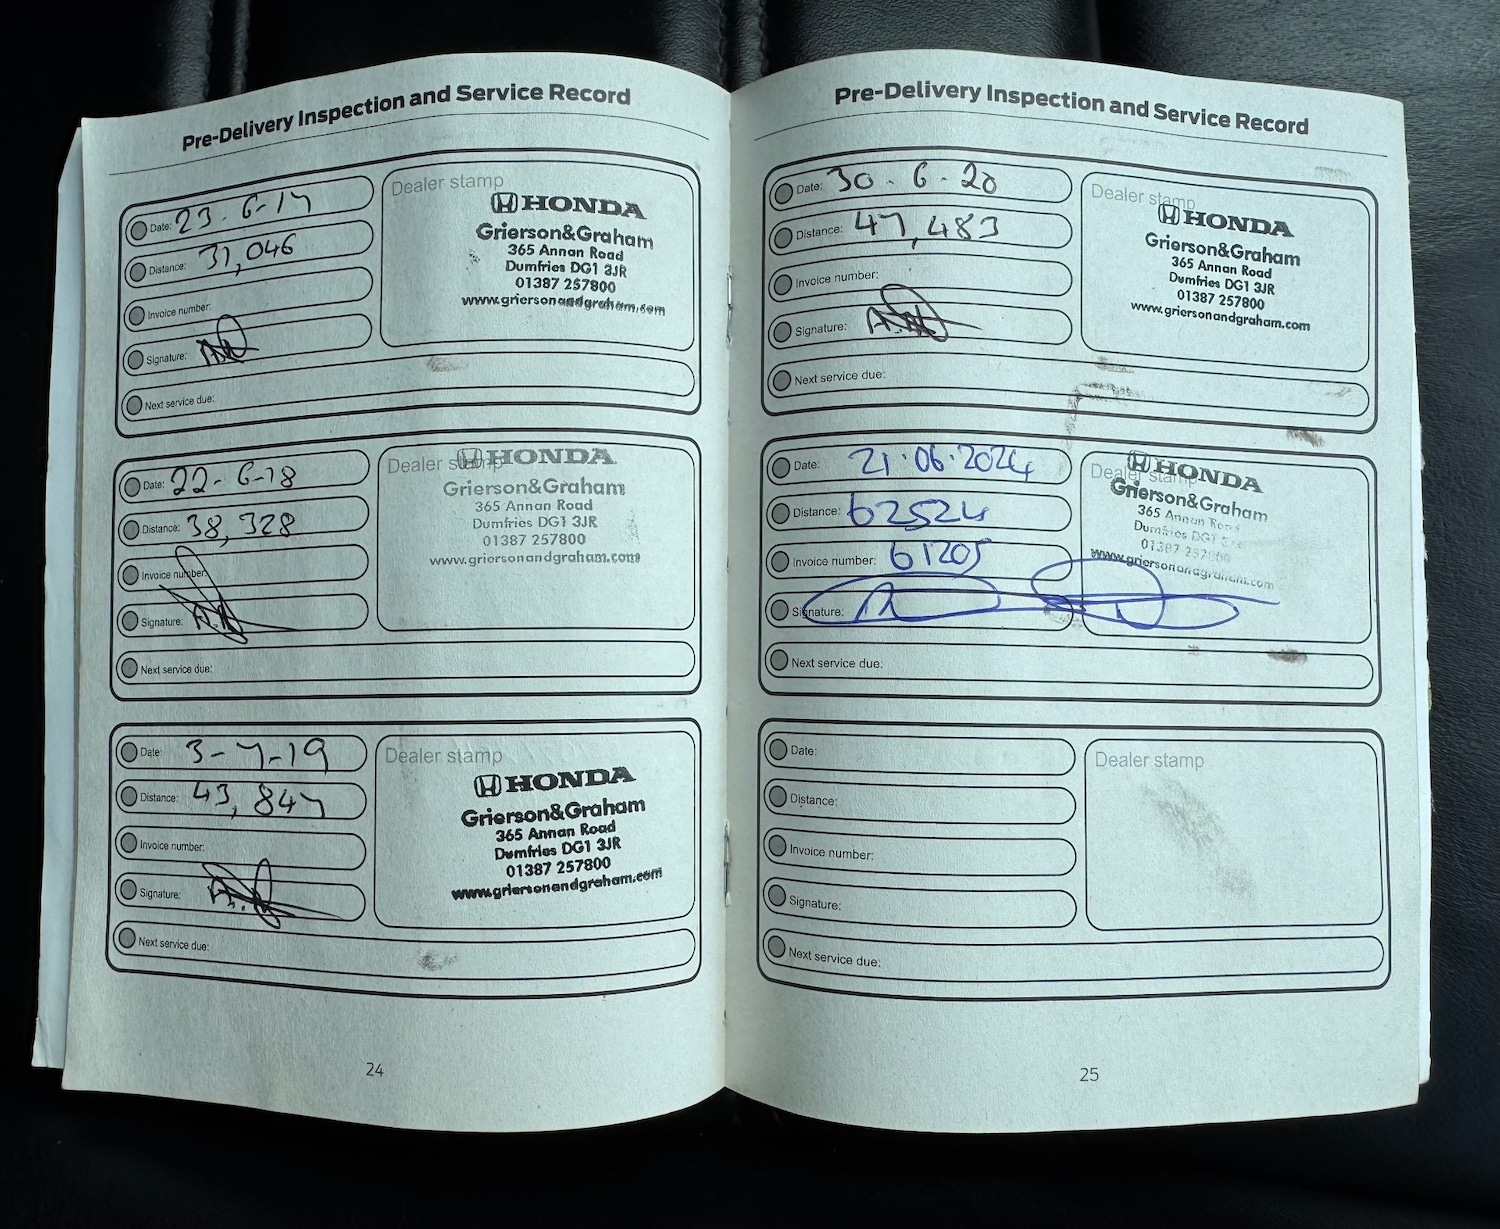 Pre-Delivery Inspection and Service Record
Date: 23-6-17
Distance: 31,046
Invoice number:
Signature:
Next service due:
Dealer stamp
HONDA
Grierson&Graham
365 Annan Road
Dumfries DG1 3JR
01387 257800
www.griersonandgraham.com
Date: 22-6-18
Distance: 38,328
Invoice number:
Signature:
Next service due:
Dealer stamp
HONDA
Grierson&Graham
365 Annan Road
Dumfries DG1 3JR
01387 257800
www.griersonandgraham.com
Date: 3-7-19
Distance: 43,847
Invoice number:
Signature:
Next service due:
Dealer stamp
HONDA
Grierson&Graham
365 Annan Road
Dumfries DG1 3JR
01387 257800
www.griersonandgraham.com
24
Pre-Delivery Inspection and Service Record
Date: 30-6-20
Distance: 47,483
Invoice number:
Signature:
Next service due:
Dealer stamp
HONDA
Grierson&Graham
365 Annan Road
Dumfries DG1 3JR
01387 257800
www.griersonandgraham.com
Date: 21.06.2024
Distance: 62524
Invoice number: 61205
Signature:
Next service due:
Dealer stamp
HONDA
Grierson&Graham
365 Annan Road
Dumfries DG1
01387 257800
www.griersonandgraham.com
Date:
Distance:
Invoice number:
Signature:
Next service due:
Dealer stamp
25